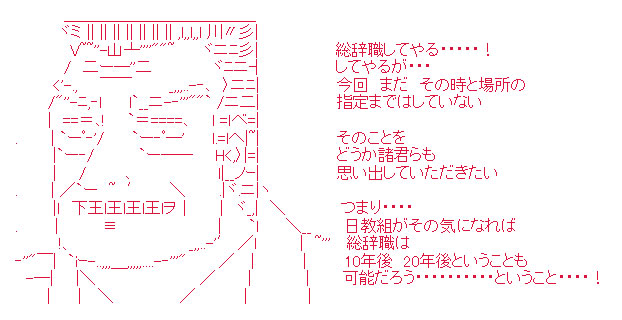 総辞職してやる・・・・・！
してやるが・・・
今回　まだ　その時と場所の
指定まではしていない
そのことを
どうか諸君らも
思い出していただきたい
つまり・・・・
日教組がその気になれば
総辞職は
10年後　20年後ということも
可能だろう・・・・・・・・・・ということ・・・・！